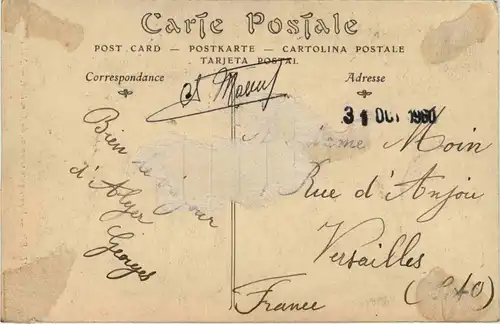 Carte Postale
POST CARD — POSTKARTE — CARTOLINA POSTALE
TARJETA POSTAL
Correspondance
Adresse
31 OCT 1960
Bien
d'Alger
Georges
Moin
Rue d'Anjou
Versailles
(S & O)
France